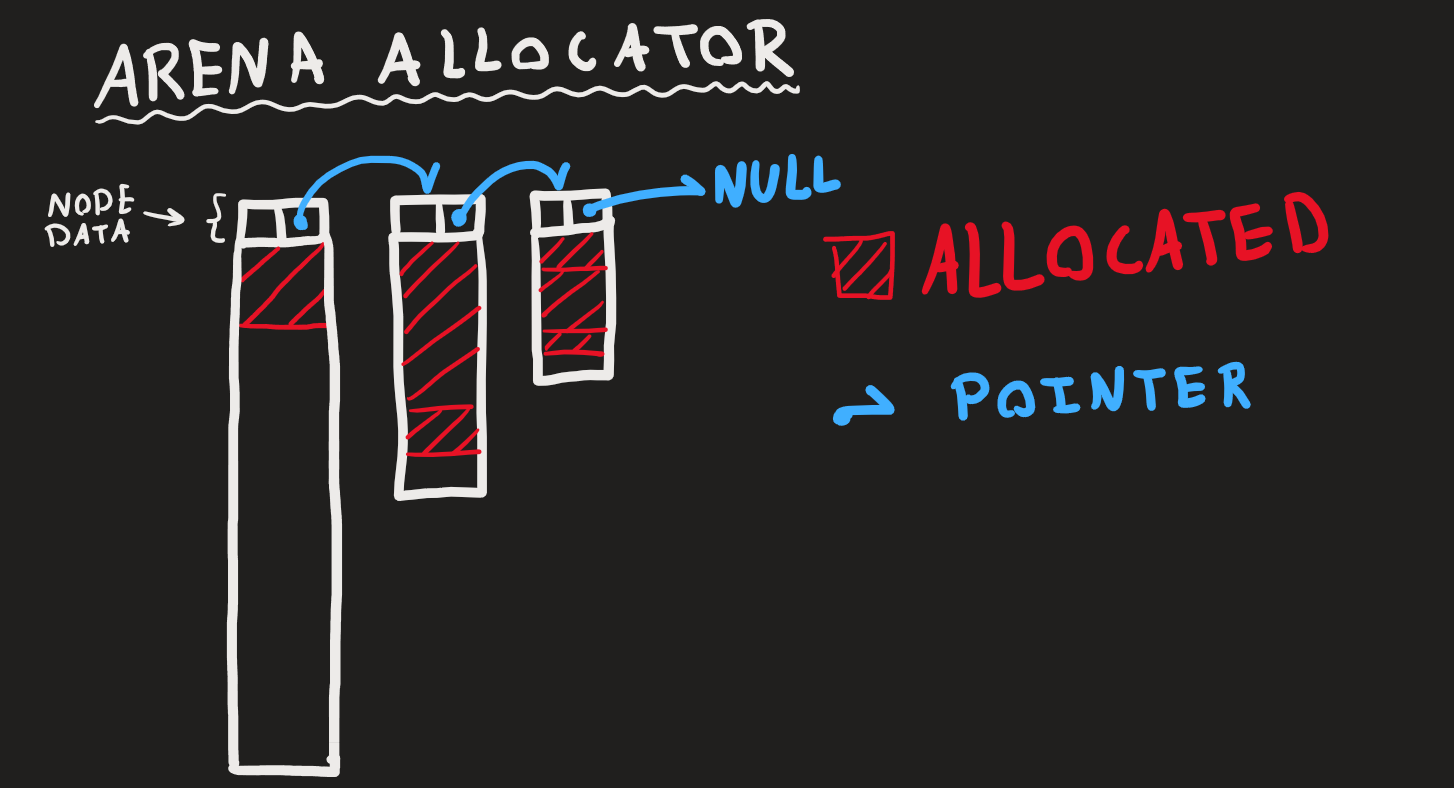 ARENA ALLOCATOR
NODE
DATA
NULL
ALLOCATED
POINTER